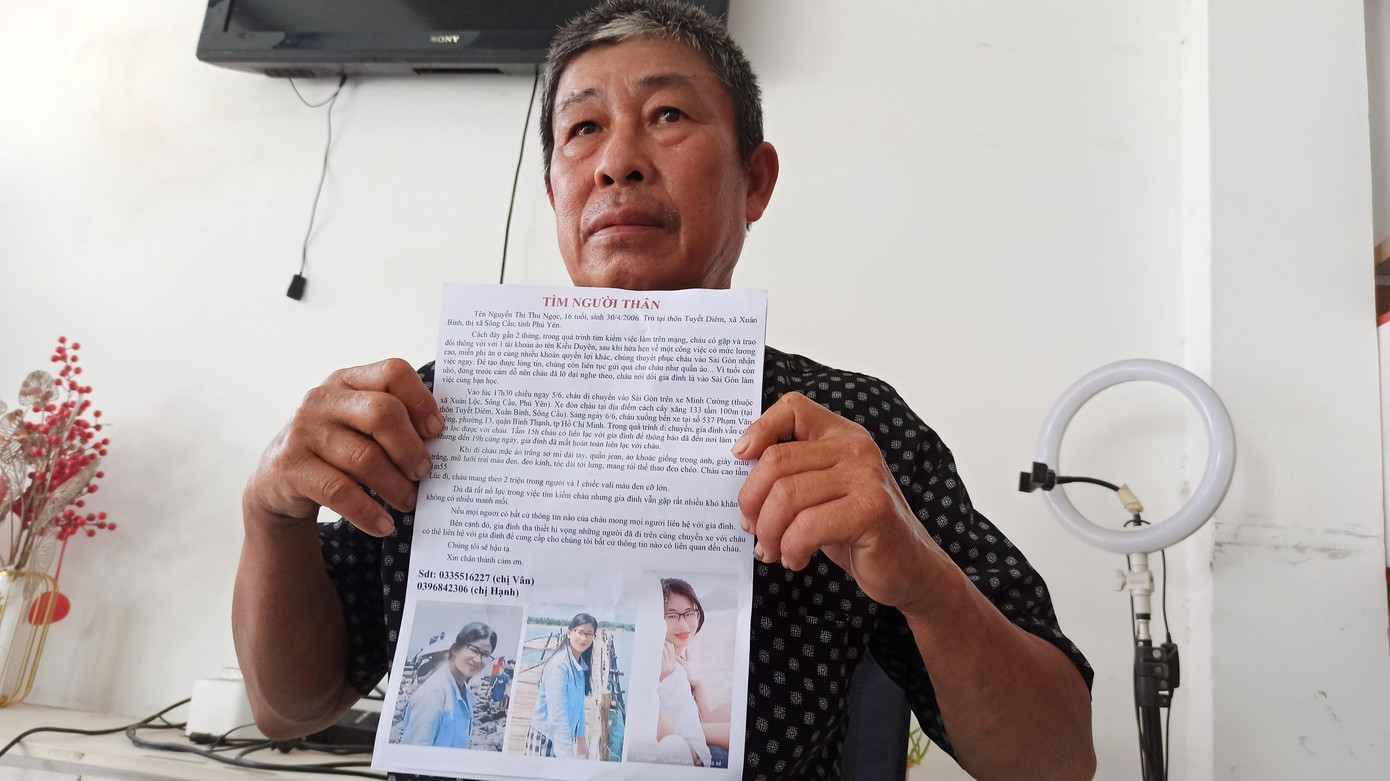 SONY
TÌM NGƯỜI THÂN
Tên Nguyễn Thị Thu Ngọc, 16 tuổi, sinh 30/4/2006. Trú tại thôn Tuyết Diêm, xã Xuân
Bình, thị xã Sông Cầu, tỉnh Phú Yên.
Cách đây gần 2 tháng, trong quá trình tìm kiếm việc làm trên mạng, cháu có gặp và trao
đổi thông với với 1 tài khoản ảo tên Kiều Duyên, sau khi hứa hẹn về một công việc có mức lương
cao, miễn phí ăn ở cùng nhiều khoản quyền lợi khác, chúng thuyết phục cháu vào Sài Gòn nhận
việc ngay. Để tạo được lòng tin, chúng còn liên tục gửi quà cho cháu như quần áo... Vì tuổi còn
nhỏ, đứng trước cám dỗ nên cháu đã lỡ dại nghe theo, cháu nói dối gia đình là vào Sài Gòn làm
việc cùng bạn học.
Vào lúc 17h30 chiều ngày 5/6, cháu di chuyển vào Sài Gòn trên xe Minh Cường (thuộc
xã Xuân Lộc, Sông Cầu, Phú Yên). Xe đón cháu tại địa điểm cách cây xăng 133 tầm 100m (tại
thôn Tuyết Diêm, Xuân Bình, Sông Cầu). Sáng ngày 6/6, cháu xuống bến xe tại số 537 Phạm Văn
Đồng, phường 13, quận Bình Thạnh, tp Hồ Chí Minh. Trong quá trình di chuyển, gia đình vẫn còn
liên lạc được với cháu. Tầm 15h cháu có liên lạc với gia đình để thông báo đã đến nơi làm
nhưng đến 19h cùng ngày, gia đình đã mất hoàn toàn liên lạc với cháu.
Khi đi cháu mặc áo trắng sơ mi dài tay, quần jean, áo khoác giống trong ảnh, giày màu
trắng, mũ lưỡi trai màu đen, đeo kính, tóc dài tới lưng, mang túi thể thao đeo chéo. Cháu cao tầm
1m55.
Lúc đi, cháu mang theo 2 triệu trong người và 1 chiếc vali màu đen cỡ lớn.
Dù đã rất nỗ lực trong việc tìm kiếm cháu nhưng gia đình vẫn gặp rất nhiều khó khăn
không có nhiều manh mối.
Nếu mọi người có bất cứ thông tin nào của cháu mong mọi người liên hệ với gia đình.
Bên cạnh đó, gia đình tha thiết hi vọng những người đã đi trên cùng chuyến xe với cháu
có thể liên hệ với gia đình để cung cấp cho chúng tôi bất cứ thông tin nào có liên quan đến cháu.
Chúng tôi sẽ hậu tạ.
Xin chân thành cảm ơn.
Sdt: 0335516227 (chị Vân)
0396842306 (chị Hạnh)